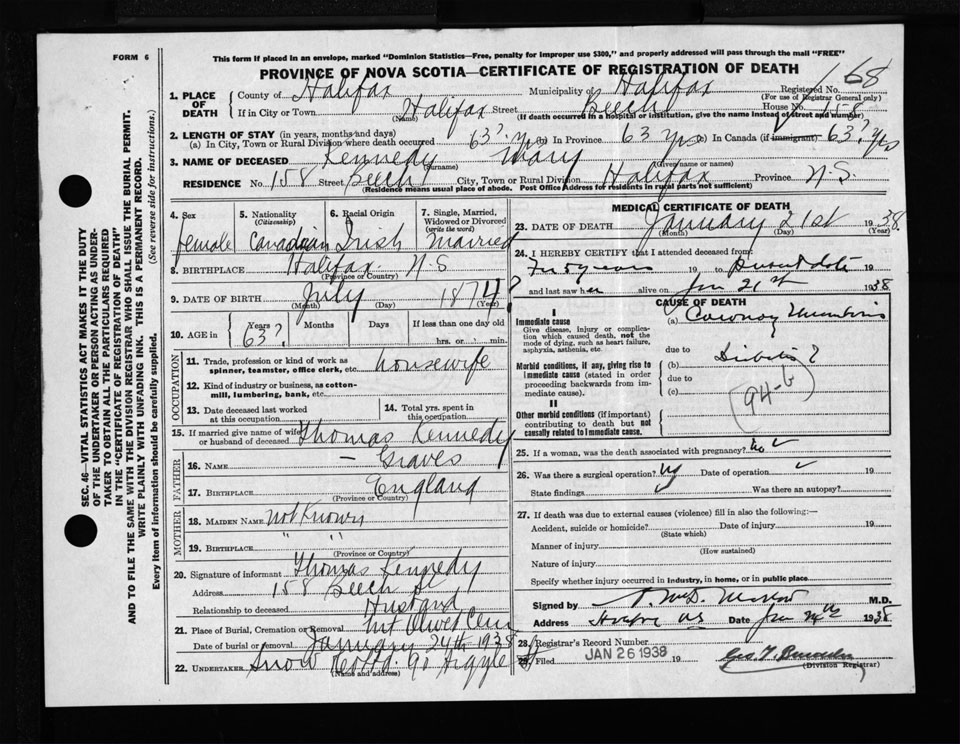 FORM 6
This form if placed in an envelope, marked "Dominion Statistics—Free, penalty for improper use $300," and properly addressed will pass through the mail "FREE"
PROVINCE OF NOVA SCOTIA—CERTIFICATE OF REGISTRATION OF DEATH
168
1. PLACE OF DEATH
County of Halifax Municipality of Halifax Registered No.
(For use of Registrar General only)
If in City or Town Halifax Street Beech House No. 158
(Name) (If death occurred in a hospital or institution, give the name instead of street and number)
2. LENGTH OF STAY (in years, months and days)
(a) In City, Town or Rural Division where death occurred 63? yrs (b) In Province 63 yrs (c) In Canada (if immigrant) 63? yrs
3. NAME OF DECEASED Kennedy Mary
(Surname) (Given name or names)
RESIDENCE No. 158 Street Beech City, Town or Rural Division Halifax Province N.S.
(Residence means usual place of abode. Post Office Address for residents in rural parts not sufficient)
4. Sex
female
5. Nationality
(Citizenship)
Canadian
6. Racial Origin
Irish
7. Single, Married, Widowed or Divorced
(write the word)
Married
8. BIRTHPLACE Halifax N.S
(Province or Country)
9. DATE OF BIRTH July 1874?
(Month) (Day) (Year)
10. AGE in
Years 63? Months Days If less than one day old
hrs. or min.
OCCUPATION
11. Trade, profession or kind of work as spinner, teamster, office clerk, etc. housewife
12. Kind of industry or business, as cotton-mill, lumbering, bank, etc.
13. Date deceased last worked at this occupation
14. Total yrs. spent in this occupation
15. If married give name of wife or husband of deceased Thomas Kennedy
FATHER
16. NAME — Graves
17. BIRTHPLACE England
(Province or Country)
MOTHER
18. MAIDEN NAME not Known
19. BIRTHPLACE " "
(Province or Country)
20. Signature of informant Thomas Kennedy
Address 158 Beech St
Relationship to deceased Husband
21. Place of Burial, Cremation or Removal Mt Olivet Cem
Date of burial or removal January 24th 1938
22. UNDERTAKER Snow & Co Ltd. 90 Argyle
(Name and address)
MEDICAL CERTIFICATE OF DEATH
23. DATE OF DEATH January 21st 1938.
(Month) (Day) (Year)
24. I HEREBY CERTIFY that I attended deceased from
19 to 19
and last saw her alive on Jan 21st 1938
CAUSE OF DEATH
I
Immediate cause
Give disease, injury or complication which caused death, not the mode of dying, such as heart failure, asphyxia, asthenia, etc.
(a) Coronary
due to
Morbid conditions, if any, giving rise to immediate cause (stated in order proceeding backwards from immediate cause).
(b) Diabetes?
due to
(c)
94-b
II
Other morbid conditions (if important) contributing to death but not causally related to immediate cause.
25. If a woman, was the death associated with pregnancy? no
26. Was there a surgical operation? Date of operation 19
State findings Was there an autopsy?
27. If death was due to external causes (violence) fill in also the following:—
Accident, suicide or homicide? Date of injury 19
(State which)
Manner of injury
(How sustained)
Nature of injury
Specify whether injury occurred in industry, in home, or in public place
Signed by M.D.
Address Halifax NS Date Jan 1938
28. Registrar's Record Number
29. Filed JAN 26 1938 19
(Division Registrar)
SEC. 46—VITAL STATISTICS ACT MAKES IT THE DUTY
OF THE UNDERTAKER OR PERSON ACTING AS UNDER-
TAKER TO OBTAIN ALL THE PARTICULARS REQUIRED
IN THE "CERTIFICATE OF REGISTRATION OF DEATH"
AND TO FILE THE SAME WITH THE DIVISION REGISTRAR WHO SHALL ISSUE THE BURIAL PERMIT.
WRITE PLAINLY WITH UNFADING INK. THIS IS A PERMANENT RECORD.
Every item of information should be carefully supplied. (See reverse side for instructions.)